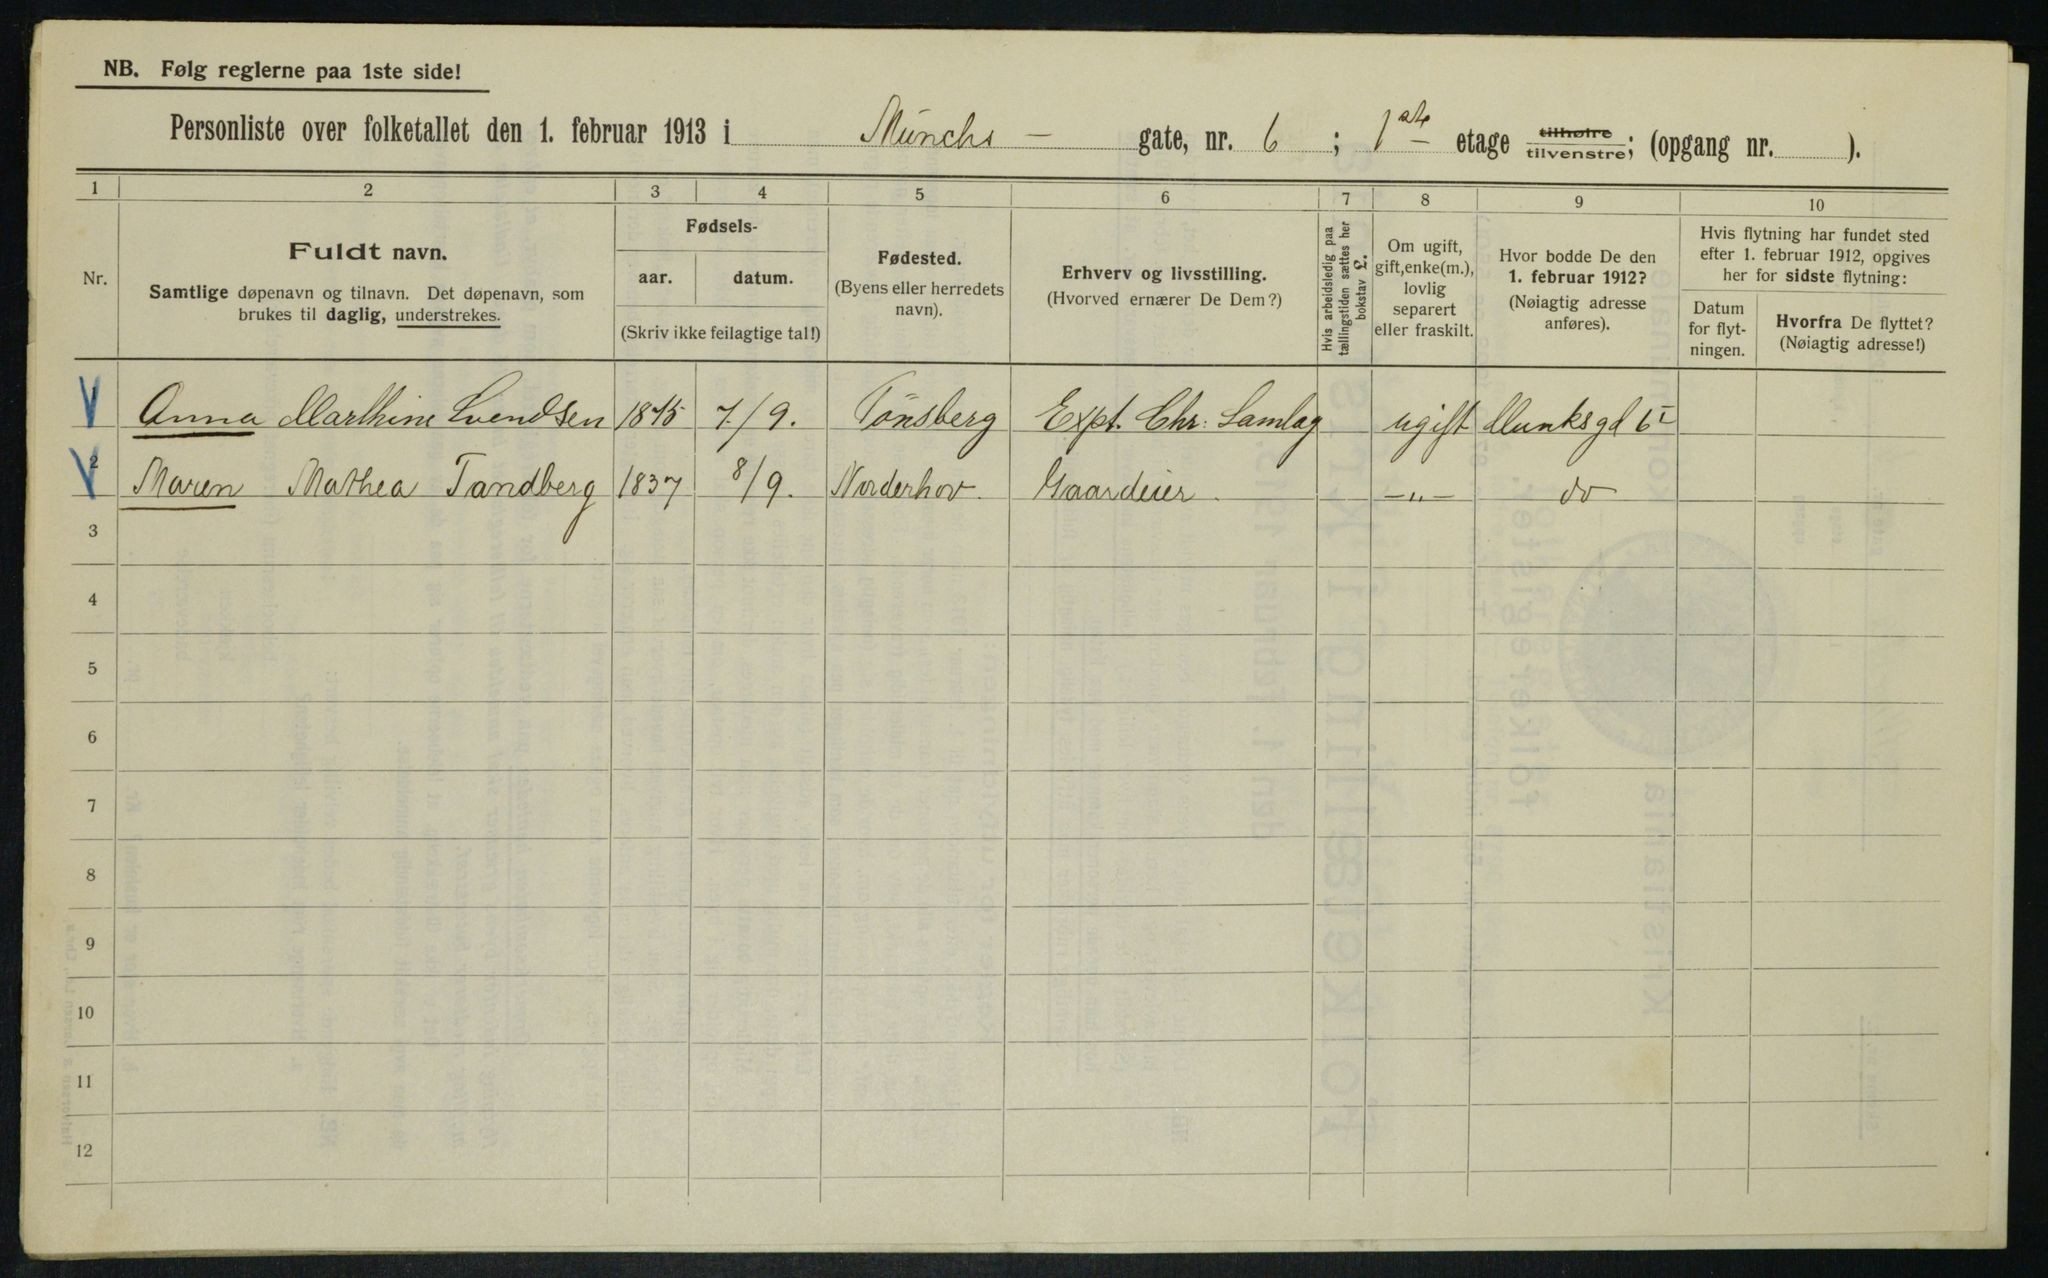 NB. Følg reglerne paa 1ste side!
Personliste over folketallet den 1. februar 1913 i Munchs — gate, nr. 6 ; 1ste etage tilhøire tilvenstre; (opgang nr. ).
1 2 3 4 5 6 7 8 9 10
Nr.
Fuldt navn.
Samtlige døpenavn og tilnavn. Det døpenavn, som
brukes til daglig, understrekes.
Fødsels-
aar. datum.
(Skriv ikke feilagtige tal!)
Fødested.
(Byens eller herredets
navn).
Erhverv og livsstilling.
(Hvorved ernærer De Dem?)
Hvis arbeidsledig paa
tællingstiden sættes her
bokstav L.
Om ugift,
gift, enke(m.),
lovlig
separert
eller fraskilt.
Hvor bodde De den
1. februar 1912?
(Nøiagtig adresse
anføres).
Hvis flytning har fundet sted
efter 1. februar 1912, opgives
her for sidste flytning:
Datum
for flyt-
ningen.
Hvorfra De flyttet?
(Nøiagtig adresse!)
1 Anna Marthine Svendsen 1875 7/9. Tönsberg Expt. Chr: Samlag ugift Munksgd 6 I
2 Maren Mathea Tandberg 1837 8/9. Norderhov. Gaardeier. —„— do
3
4
5
6
7
8
9
10
11
12